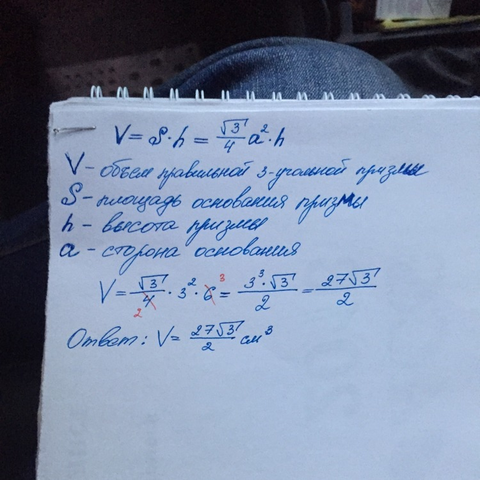 V = S · h = √3/4 a² · h
V - объем правильной 3-угольной призмы
S - площадь основания призмы
h - высота призмы
a - сторона основания
V = √3/4 · 3² · 6 = 3³·√3/2 = 27√3/2
2 3
Ответ: V = 27√3/2 см³